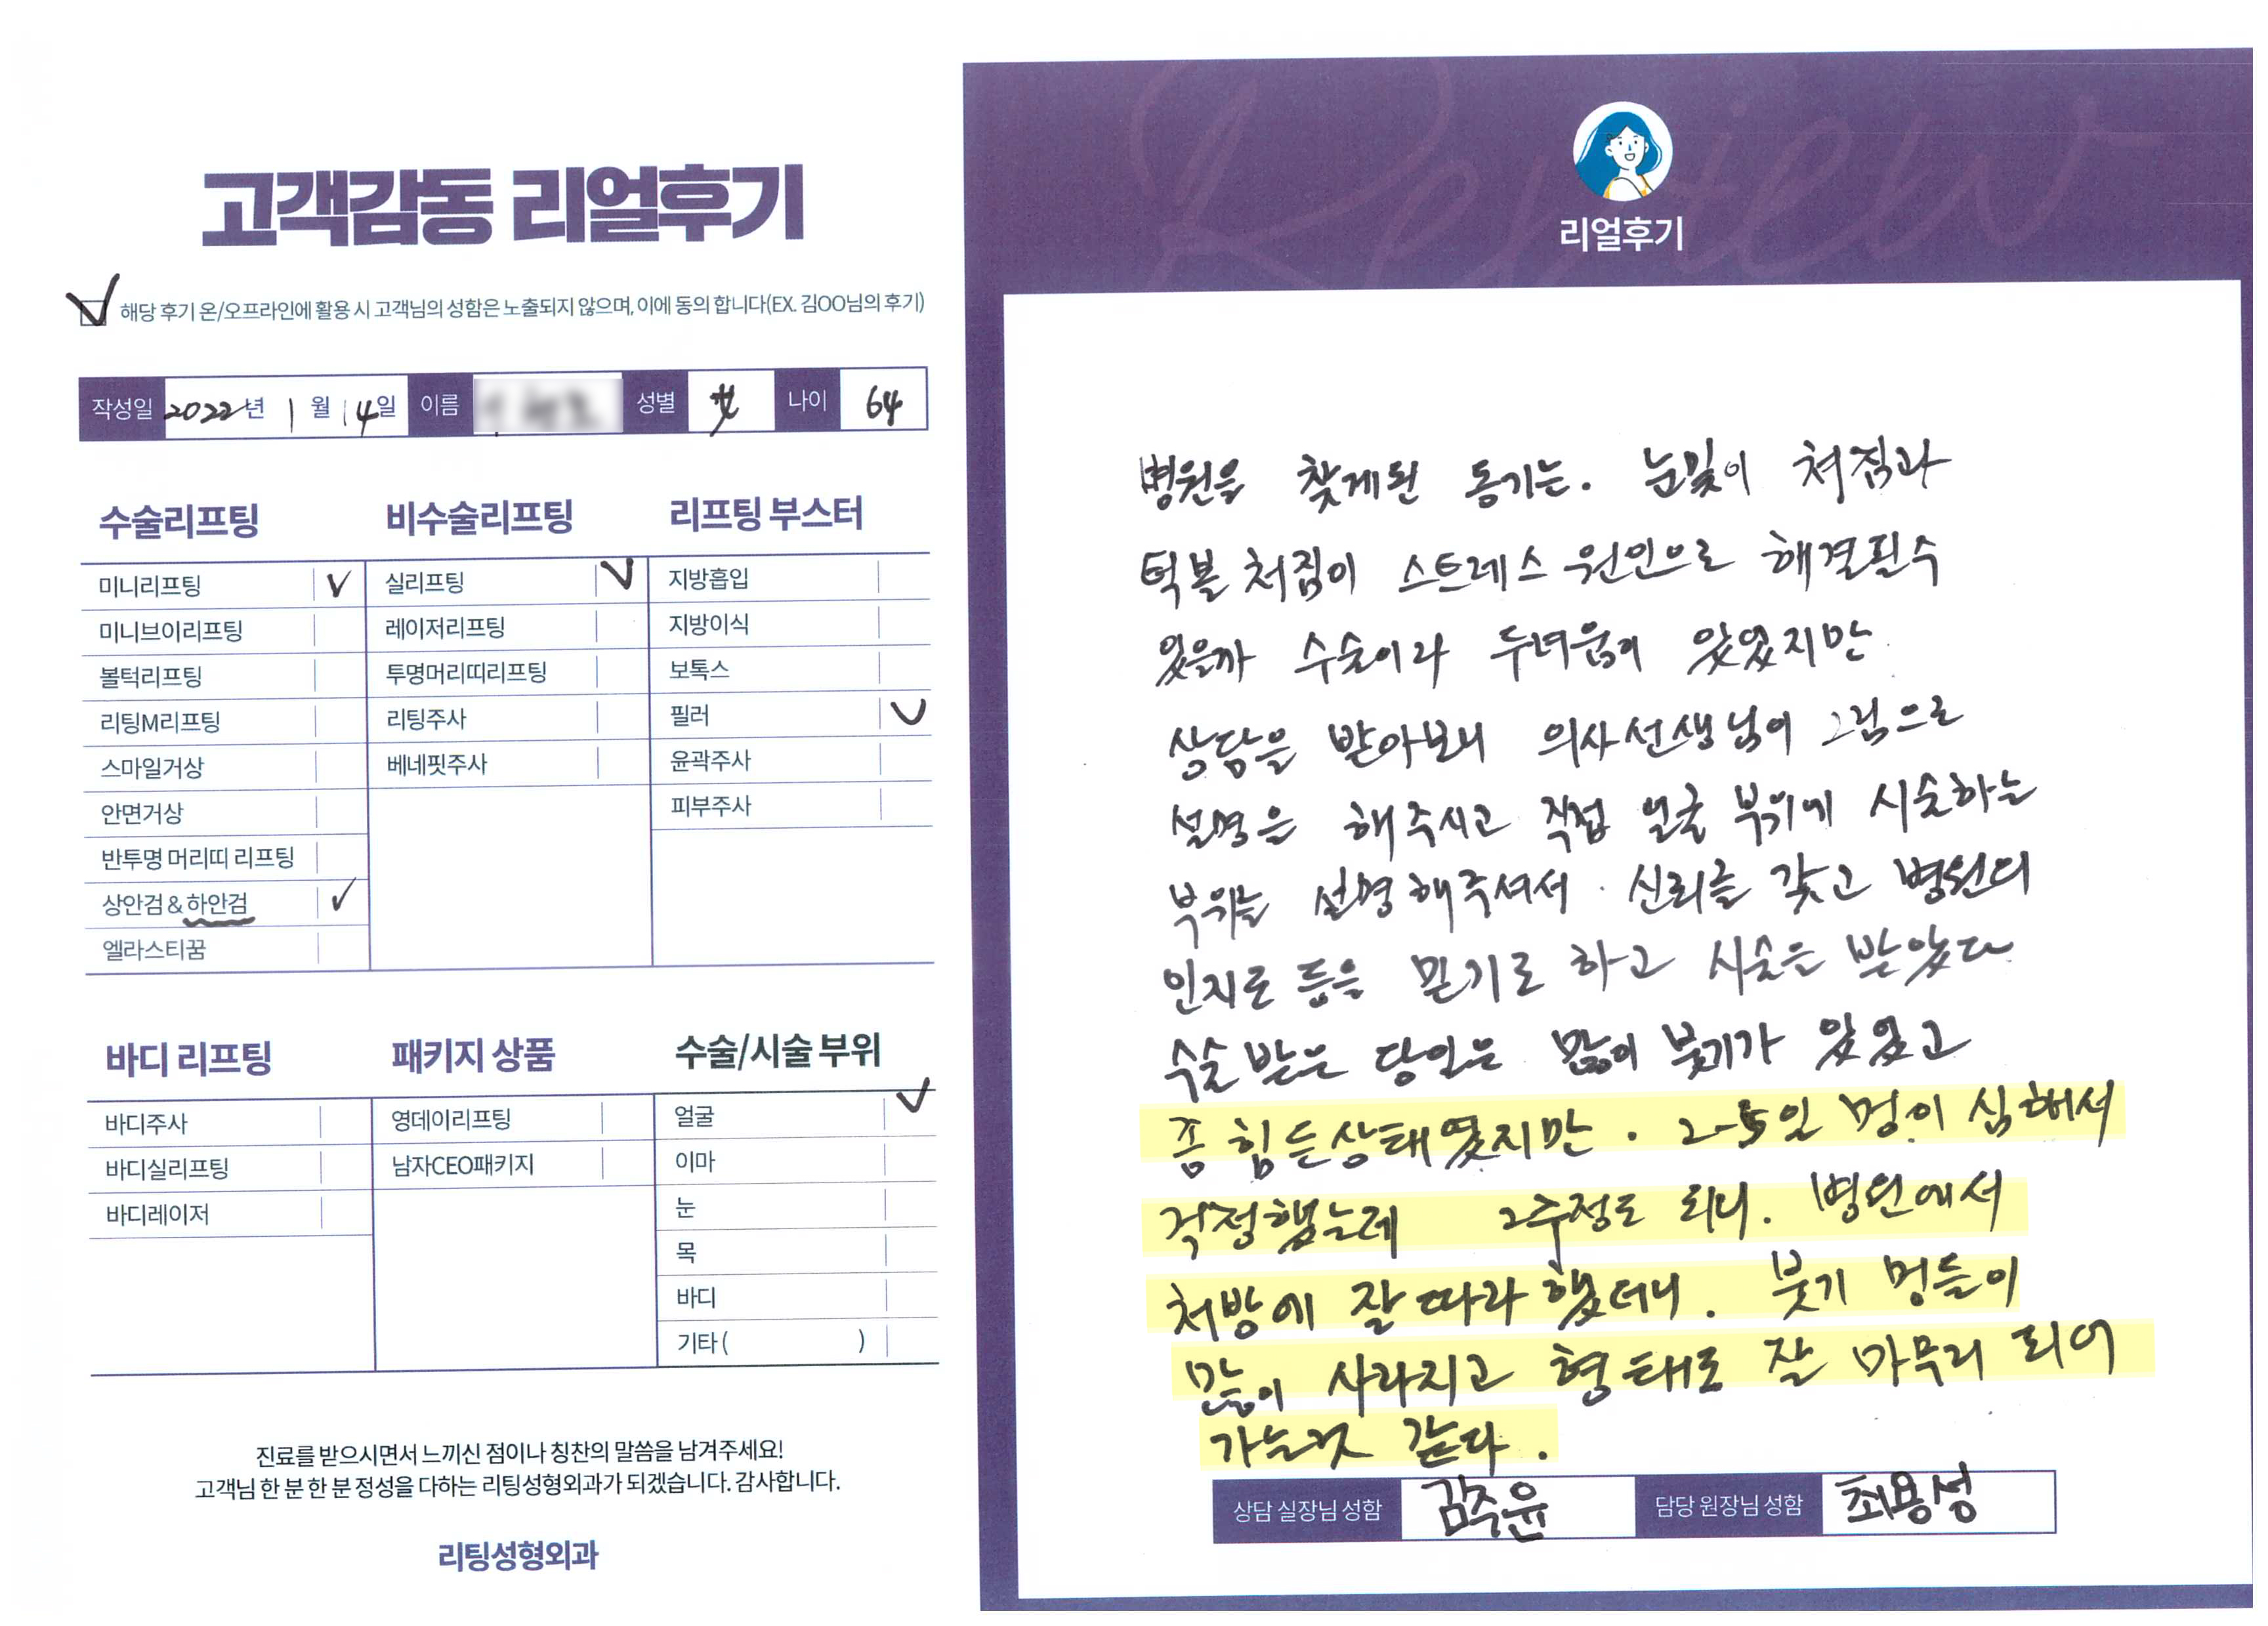 고객감동 리얼후기
해당 후기 온/오프라인에 활용 시 고객님의 성함은 노출되지 않으며, 이에 동의 합니다(EX. 김OO님의 후기)
작성일 2022년 1월 14일 이름 성별 女 나이 64
수술리프팅
미니리프팅 V
미니브이리프팅
볼턱리프팅
리팅M리프팅
스마일거상
안면거상
반투명 머리띠 리프팅
상안검 & 하안검 ✓
엘라스티꿈
비수술리프팅
실리프팅 V
레이저리프팅
투명머리띠리프팅
리팅주사
베네핏주사
리프팅 부스터
지방흡입
지방이식
보톡스
필러 V
윤곽주사
피부주사
바디 리프팅
바디주사
바디실리프팅
바디레이저
패키지 상품
영데이리프팅
남자CEO패키지
수술/시술 부위
얼굴 ✓
이마
눈
목
바디
기타 ( )
진료를 받으시면서 느끼신 점이나 칭찬의 말씀을 남겨주세요!
고객님 한 분 한 분 정성을 다하는 리팅성형외과가 되겠습니다. 감사합니다.
리팅성형외과
Review
리얼후기
병원을 찾게된 동기는. 눈밑이 쳐짐과
턱볼 쳐짐이 스트레스 원인으로 해결될수
있을까 수술이라 두려움이 있었지만
상담을 받아보니 의사선생님이 그림으로
설명을 해주시고 직접 얼굴 부위에 시술하는
부위를 설명해주셔서. 신뢰를 갖고 병원의
인지도 등을 믿기로 하고 시술을 받았다
수술 받은 당일은 많이 붓기가 있었고
좀 힘든상태였지만. 2-5일 멍이 심해서
걱정했는데 2주정도 되니. 병원에서
처방에 잘 따라 했더니. 붓기 멍들이
많이 사라지고 형태로 잘 마무리 되어
가는것 같다.
상담 실장님 성함 김주윤 담당 원장님 성함 최용성